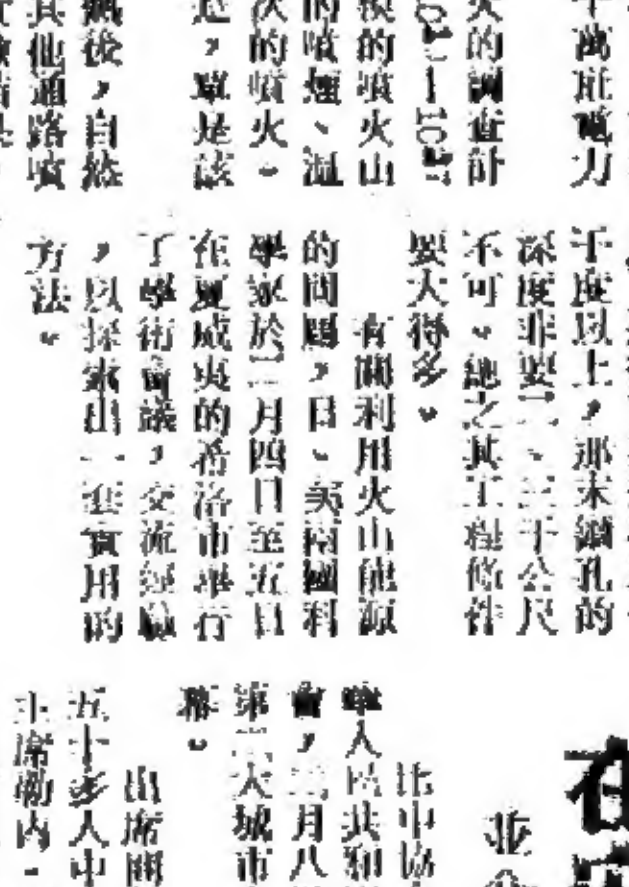 千萬瓩電力
火的調查計
模的噴火山
的噴煙、溫
次的噴火。
起,單是該
飙後,自然
其他通路噴
千度以上,那末鑽孔的
深度非要二、三千公尺
不可。總之其工程條件
要大得多。
有關利用火山能源
的問題,日、美兩國科
學家於二月四日至五日
在夏威夷的希洛市舉行
了學術會議,交流經驗
,以探索出一套實用的
方法。
在
並
比中協
華人民共和
會,二月八
第三大城市
幕。
出席開
五十多人中
主席勒內·